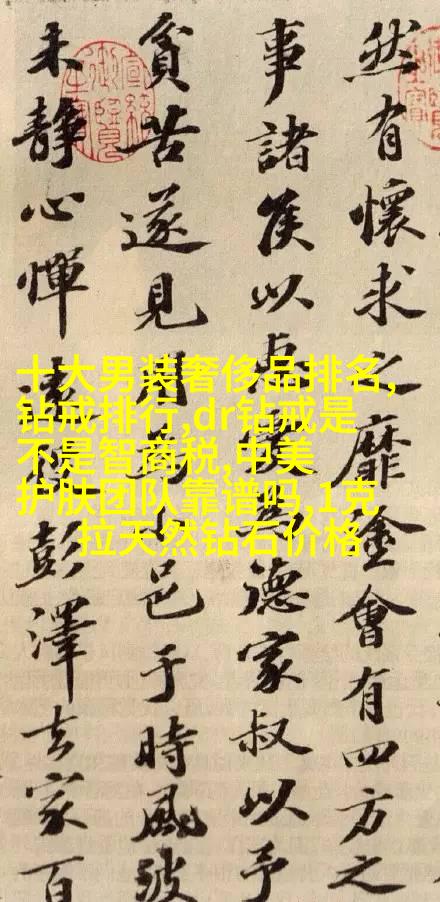 然有懷求之靡途會有四方之
事諸侯以惠愛為德家叔以予
貧苦遂見用為小邑于時風波
未靜心憚遠役彭澤去家百
十大男装奢侈品排名,
钻戒排行,dr钻戒是
不是智商税,中美
护肤团队靠谱吗,1克
拉天然钻石价格